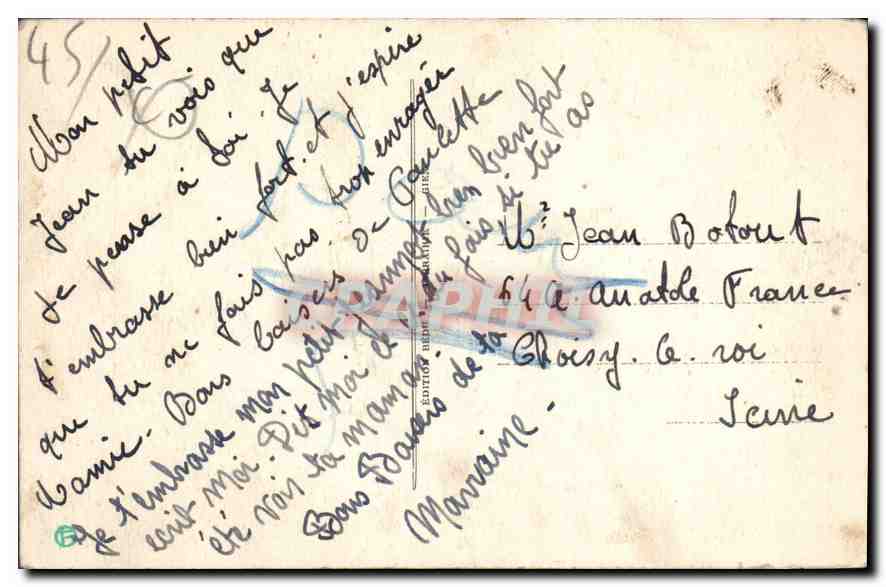 45
Mon petit
Jean tu vois que
je pense à toi. Je
t'embrasse bien fort. et j'espire
que tu ne fais pas trop enrager
Mamie. Bons baisers de Paulette
Je t'embrasse mon petit bien bien fort
écrit moi. Dit moi si tu as
été voir ta maman
Bons Baisers de ta
Marraine -
ÉDITION
Mr Jean Botout
64 a. anatole France
Choisy. le. roi
Seine